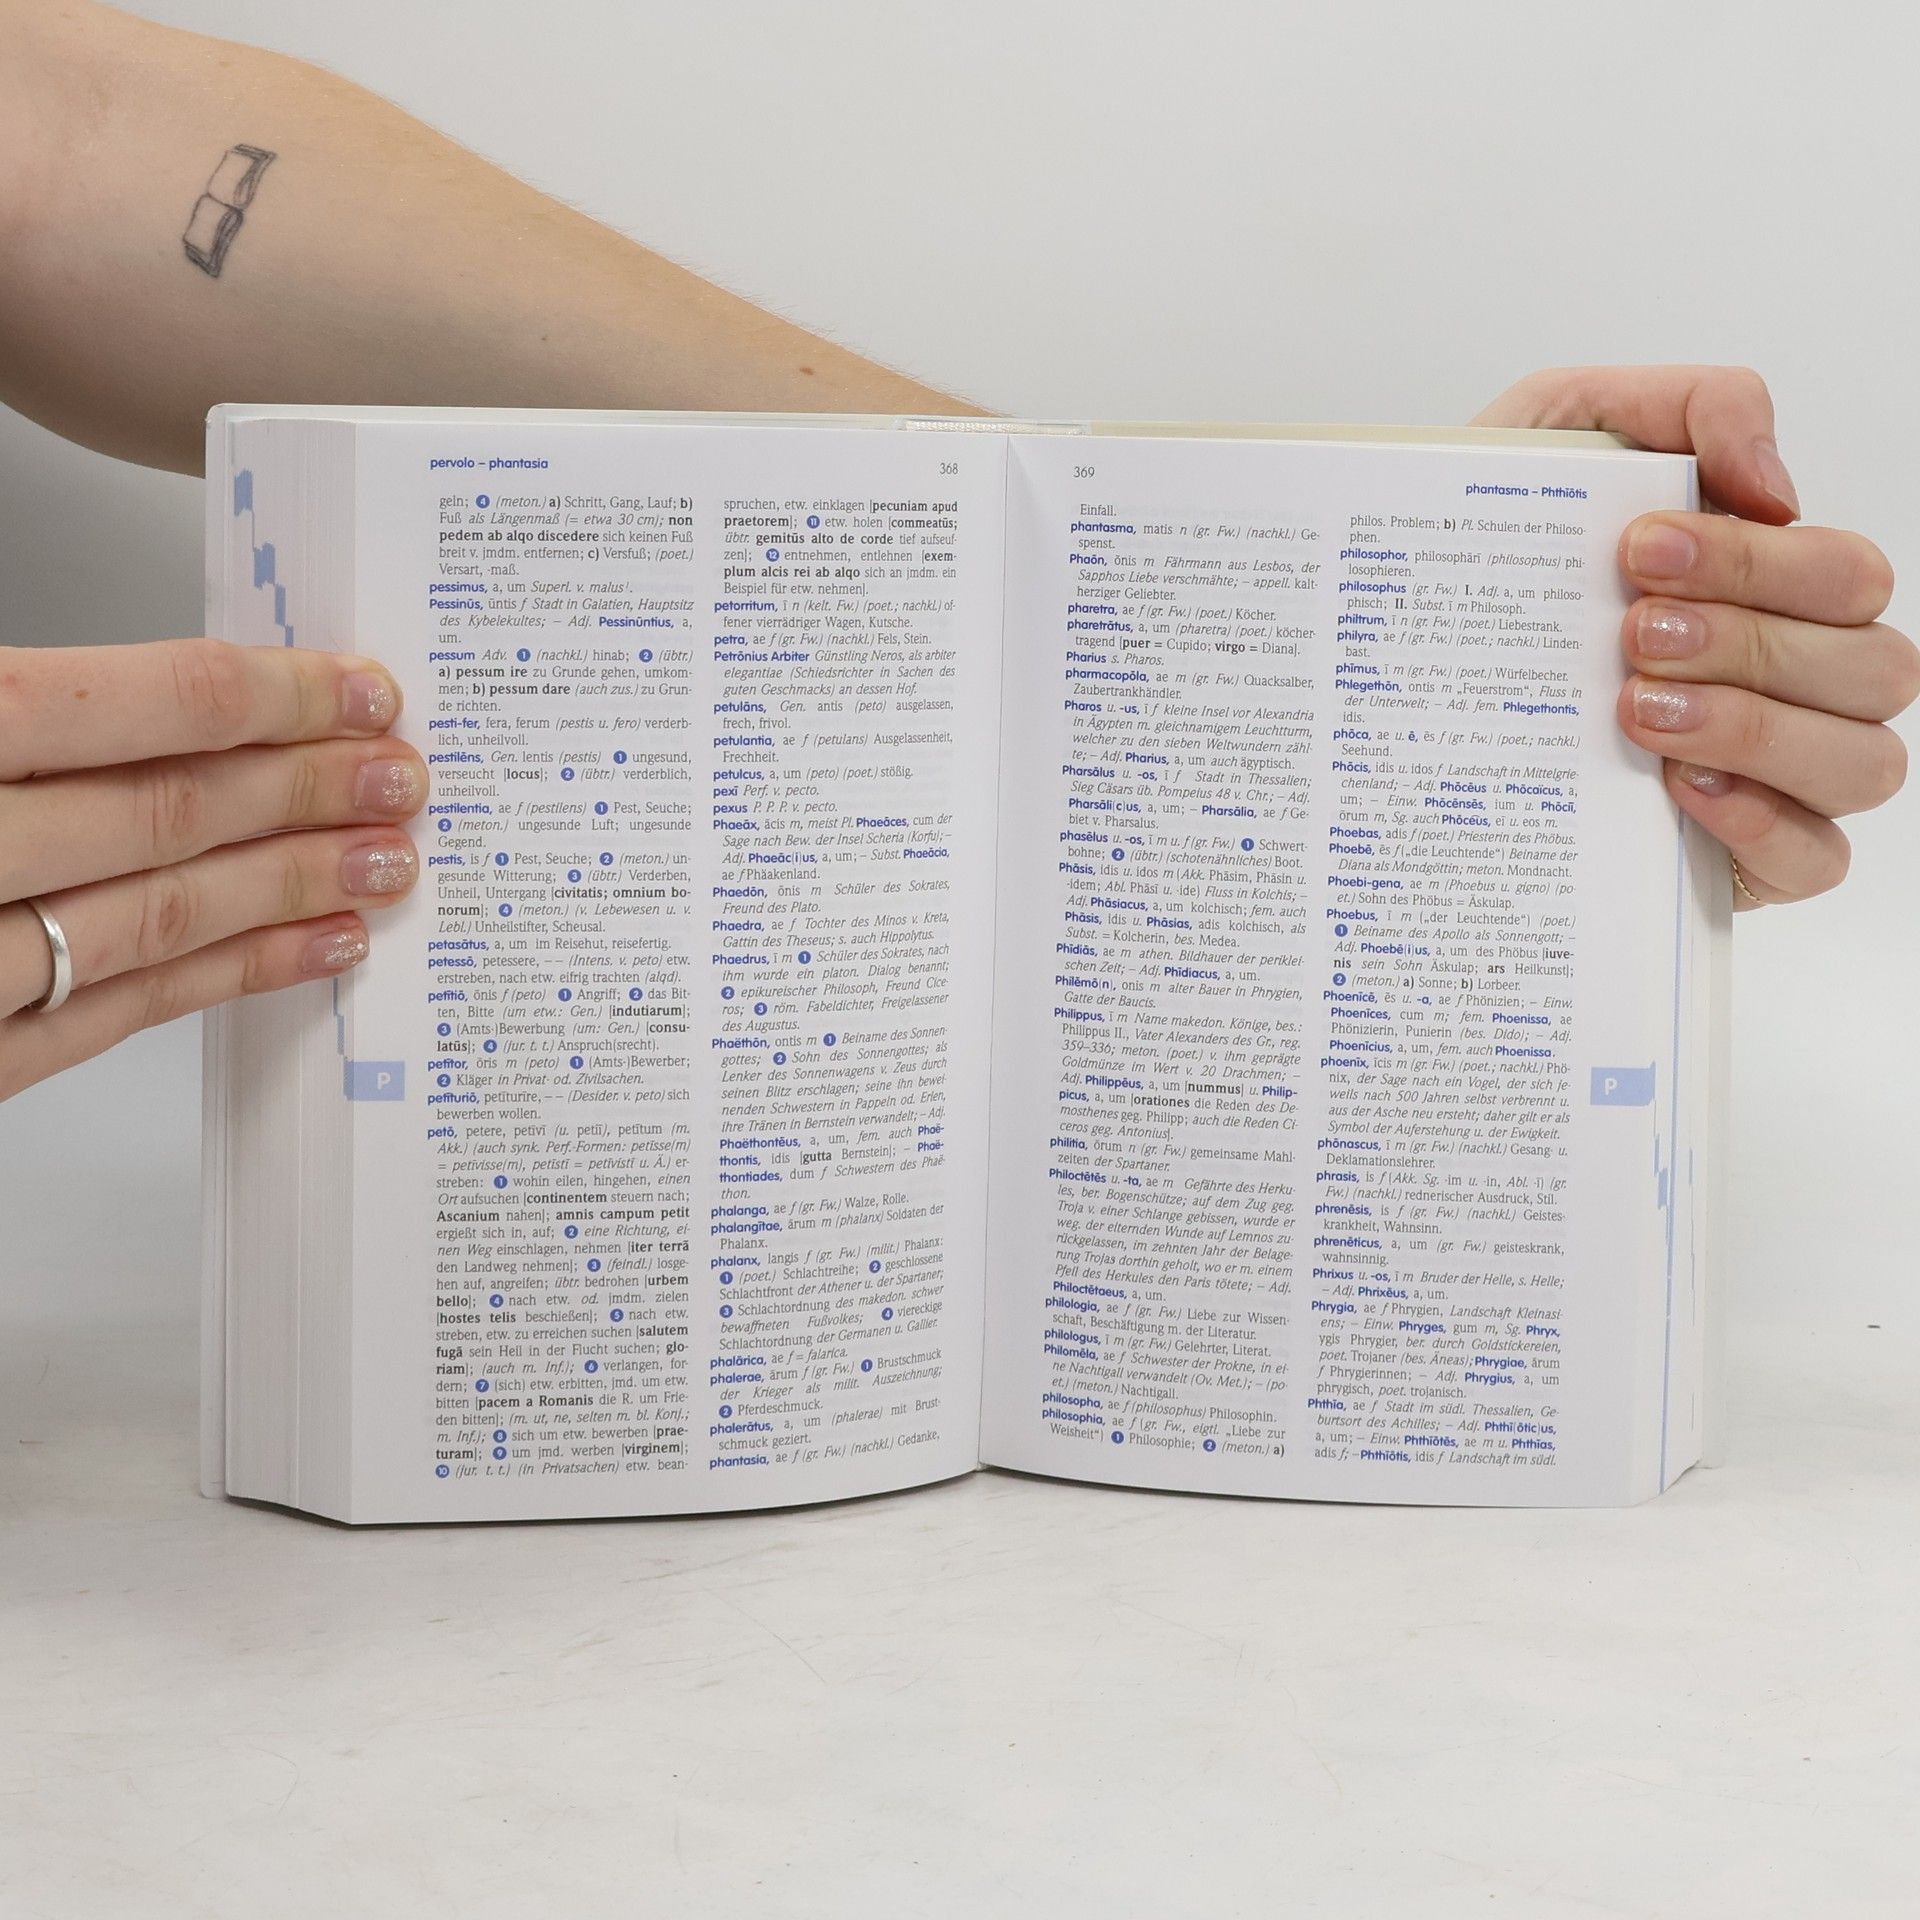 pervolo – phantasia
368
geln; 4 (meton.) a) Schritt, Gang, Lauf; b)
Fuß als Längenmaß (= etwa 30 cm); non
pedem ab alqo discedere sich keinen Fuß
breit v. jmdm. entfernen; c) Versfuß; (poet.)
Versart, -maß.
pessimus, a, um Superl. v. malus¹.
Pessinūs, ūntis f Stadt in Galatien, Hauptsitz
des Kybelekultes; – Adj. Pessinūntius, a,
um.
pessum Adv. 1 (nachkl.) hinab; 2 (übtr.)
a) pessum ire zu Grunde gehen, umkom-
men; b) pessum dare (auch zus.) zu Grun-
de richten.
pesti-fer, fera, ferum (pestis u. fero) verderb-
lich, unheilvoll.
pestilēns, Gen. lentis (pestis) 1 ungesund,
verseucht |locus|; 2 (übtr.) verderblich,
unheilvoll.
pestilentia, ae f (pestilens) 1 Pest, Seuche;
2 (meton.) ungesunde Luft; ungesunde
Gegend.
pestis, is f 1 Pest, Seuche; 2 (meton.) un-
gesunde Witterung; 3 (übtr.) Verderben,
Unheil, Untergang |civitatis; omnium bo-
norum|; 4 (meton.) (v. Lebewesen u. v.
Lebl.) Unheilstifter, Scheusal.
petasātus, a, um im Reisehut, reisefertig.
petessō, petessere, – – (Intens. v. peto) etw.
erstreben, nach etw. eifrig trachten (alqd).
petītiō, ōnis f (peto) 1 Angriff; 2 das Bit-
ten, Bitte (um etw.: Gen.) |indutiarum|;
3 (Amts-)Bewerbung (um: Gen.) |consu-
latūs|; 4 (jur. t. t.) Anspruch(srecht).
petītor, ōris m (peto) 1 (Amts-)Bewerber;
2 Kläger in Privat- od. Zivilsachen.
petīturiō, petīturīre, – – (Desider. v. peto) sich
bewerben wollen.
petō, petere, petīvī (u. petiī), petītum (m.
Akk.) (auch synk. Perf.-Formen: petīsse(m)
= petīvisse(m), petīstī = petīvistī u. Ä.) er-
streben: 1 wohin eilen, hingehen, einen
Ort aufsuchen |continentem steuern nach;
Ascanium nahen|; amnis campum petit
ergießt sich in, auf; 2 eine Richtung, ei-
nen Weg einschlagen, nehmen |iter terrā
den Landweg nehmen|; 3 (feindl.) losge-
hen auf, angreifen; übtr. bedrohen |urbem
bello|; 4 nach etw. od. jmdm. zielen
|hostes telis beschießen|; 5 nach etw.
streben, etw. zu erreichen suchen |salutem
fugā sein Heil in der Flucht suchen; glo-
riam|; (auch m. Inf.); 6 verlangen, for-
dern; 7 (sich) etw. erbitten, jmd. um etw.
bitten |pacem a Romanis die R. um Frie-
den bitten|; (m. ut, ne, selten m. bl. Konj.;
m. Inf.); 8 sich um etw. bewerben |prae-
turam|; 9 um jmd. werben |virginem|;
10 (jur. t. t.) (in Privatsachen) etw. bean-
spruchen, etw. einklagen |pecuniam apud
praetorem|; 11 etw. holen |commeatūs;
übtr. gemitūs alto de corde tief aufseuf-
zen|; 12 entnehmen, entlehnen |exem-
plum alcis rei ab alqo sich an jmdm. ein
Beispiel für etw. nehmen|.
petorritum, ī n (kelt. Fw.) (poet.; nachkl.) of-
fener vierrädriger Wagen, Kutsche.
petra, ae f (gr. Fw.) (nachkl.) Fels, Stein.
Petrōnius Arbiter Günstling Neros, als arbiter
elegantiae (Schiedsrichter in Sachen des
guten Geschmacks) an dessen Hof.
petulāns, Gen. antis (peto) ausgelassen,
frech, frivol.
petulantia, ae f (petulans) Ausgelassenheit,
Frechheit.
petulcus, a, um (peto) (poet.) stößig.
pexī Perf. v. pecto.
pexus P. P. P. v. pecto.
Phaeāx, ācis m, meist Pl. Phaeāces, cum der
Sage nach Bew. der Insel Scheria (Korfu); –
Adj. Phaeāc|i|us, a, um; – Subst. Phaeācia,
ae f Phäakenland.
Phaedōn, ōnis m Schüler des Sokrates,
Freund des Plato.
Phaedra, ae f Tochter des Minos v. Kreta,
Gattin des Theseus; s. auch Hippolytus.
Phaedrus, ī m 1 Schüler des Sokrates, nach
ihm wurde ein platon. Dialog benannt;
2 epikureischer Philosoph, Freund Cice-
ros; 3 röm. Fabeldichter, Freigelassener
des Augustus.
Phaëthōn, ontis m 1 Beiname des Sonnen-
gottes; 2 Sohn des Sonnengottes; als
Lenker des Sonnenwagens v. Zeus durch
seinen Blitz erschlagen; seine ihn bewei-
nenden Schwestern in Pappeln od. Erlen,
ihre Tränen in Bernstein verwandelt; – Adj.
Phaëthontēus, a, um, fem. auch Phaë-
thontis, idis |gutta Bernstein|; – Phaë-
thontiades, dum f Schwestern des Phaë-
thon.
phalanga, ae f (gr. Fw.) Walze, Rolle.
phalangītae, ārum m (phalanx) Soldaten der
Phalanx.
phalanx, langis f (gr. Fw.) (milit.) Phalanx:
1 (poet.) Schlachtreihe; 2 geschlossene
Schlachtfront der Athener u. der Spartaner;
3 Schlachtordnung des makedon. schwer
bewaffneten Fußvolkes; 4 viereckige
Schlachtordnung der Germanen u. Gallier.
phalārica, ae f = falarica.
phalerae, ārum f (gr. Fw.) 1 Brustschmuck
der Krieger als milit. Auszeichnung;
2 Pferdeschmuck.
phalerātus, a, um (phalerae) mit Brust-
schmuck geziert.
phantasia, ae f (gr. Fw.) (nachkl.) Gedanke,
P
369
phantasma – Phthīōtis
Einfall.
phantasma, matis n (gr. Fw.) (nachkl.) Ge-
spenst.
Phaōn, ōnis m Fährmann aus Lesbos, der
Sapphos Liebe verschmähte; – appell. kalt-
herziger Geliebter.
pharetra, ae f (gr. Fw.) (poet.) Köcher.
pharetrātus, a, um (pharetra) (poet.) köcher-
tragend |puer = Cupido; virgo = Diana|.
Pharius s. Pharos.
pharmacopōla, ae m (gr. Fw.) Quacksalber,
Zaubertrankhändler.
Pharos u. -us, ī f kleine Insel vor Alexandria
in Ägypten m. gleichnamigem Leuchtturm,
welcher zu den sieben Weltwundern zähl-
te; – Adj. Pharius, a, um auch ägyptisch.
Pharsālus u. -os, ī f Stadt in Thessalien;
Sieg Cäsars üb. Pompeius 48 v. Chr.; – Adj.
Pharsāli|c|us, a, um; – Pharsālia, ae f Ge-
biet v. Pharsalus.
phasēlus u. -os, ī m u. f (gr. Fw.) 1 Schwert-
bohne; 2 (übtr.) (schotenähnliches) Boot.
Phāsis, idis u. idos m (Akk. Phāsim, Phāsin u.
-idem; Abl. Phāsī u. -ide) Fluss in Kolchis; –
Adj. Phāsiacus, a, um kolchisch; fem. auch
Phāsis, idis u. Phāsias, adis kolchisch, als
Subst. = Kolcherin, bes. Medea.
Phīdiās, ae m athen. Bildhauer der periklei-
schen Zeit; – Adj. Phīdiacus, a, um.
Philēmō|n|, onis m alter Bauer in Phrygien,
Gatte der Baucis.
Philippus, ī m Name makedon. Könige, bes.:
Philippus II., Vater Alexanders des Gr., reg.
359–336; meton. (poet.) v. ihm geprägte
Goldmünze im Wert v. 20 Drachmen; –
Adj. Philippēus, a, um |nummus| u. Philip-
picus, a, um |orationes die Reden des De-
mosthenes geg. Philipp; auch die Reden Ci-
ceros geg. Antonius|.
philitia, ōrum n (gr. Fw.) gemeinsame Mahl-
zeiten der Spartaner.
Philoctētēs u. -ta, ae m Gefährte des Herku-
les, ber. Bogenschütze; auf dem Zug geg.
Troja v. einer Schlange gebissen, wurde er
weg. der eiternden Wunde auf Lemnos zu-
rückgelassen, im zehnten Jahr der Belage-
rung Trojas dorthin geholt, wo er m. einem
Pfeil des Herkules den Paris tötete; – Adj.
Philoctētaeus, a, um.
philologia, ae f (gr. Fw.) Liebe zur Wissen-
schaft, Beschäftigung m. der Literatur.
philologus, ī m (gr. Fw.) Gelehrter, Literat.
Philomēla, ae f Schwester der Prokne, in ei-
ne Nachtigall verwandelt (Ov. Met.); – (po-
et.) (meton.) Nachtigall.
philosopha, ae f (philosophus) Philosophin.
philosophia, ae f (gr. Fw., eigtl. „Liebe zur
Weisheit“) 1 Philosophie; 2 (meton.) a)
philos. Problem; b) Pl. Schulen der Philoso-
phen.
philosophor, philosophārī (philosophus) phi-
losophieren.
philosophus (gr. Fw.) I. Adj. a, um philoso-
phisch; II. Subst. ī m Philosoph.
philtrum, ī n (gr. Fw.) (poet.) Liebestrank.
philyra, ae f (gr. Fw.) (poet.; nachkl.) Linden-
bast.
phīmus, ī m (gr. Fw.) (poet.) Würfelbecher.
Phlegethōn, ontis m „Feuerstrom“, Fluss in
der Unterwelt; – Adj. fem. Phlegethontis,
idis.
phōca, ae u. ē, ēs f (gr. Fw.) (poet.; nachkl.)
Seehund.
Phōcis, idis u. idos f Landschaft in Mittelgrie-
chenland; – Adj. Phōcēus u. Phōcaicus, a,
um; – Einw. Phōcēnsēs, ium u. Phōciī,
ōrum m, Sg. auch Phōcēus, eī u. eos m.
Phoebas, adis f (poet.) Priesterin des Phöbus.
Phoebē, ēs f („die Leuchtende“) Beiname der
Diana als Mondgöttin; meton. Mondnacht.
Phoebi-gena, ae m (Phoebus u. gigno) (po-
et.) Sohn des Phöbus = Äskulap.
Phoebus, ī m („der Leuchtende“) (poet.)
1 Beiname des Apollo als Sonnengott; –
Adj. Phoebē|i|us, a, um des Phöbus |iuve-
nis sein Sohn Äskulap; ars Heilkunst|;
2 (meton.) a) Sonne; b) Lorbeer.
Phoenīcē, ēs u. -a, ae f Phönizien; – Einw.
Phoenīces, cum m; fem. Phoenissa, ae
Phönizierin, Punierin (bes. Dido); – Adj.
Phoenīcius, a, um, fem. auch Phoenissa.
phoenīx, īcis m (gr. Fw.) (poet.; nachkl.) Phö-
nix, der Sage nach ein Vogel, der sich je-
weils nach 500 Jahren selbst verbrennt u.
aus der Asche neu ersteht; daher gilt er als
Symbol der Auferstehung u. der Ewigkeit.
phōnascus, ī m (gr. Fw.) (nachkl.) Gesang- u.
Deklamationslehrer.
phrasis, is f (Akk. Sg. -im u. -in, Abl. -ī) (gr.
Fw.) (nachkl.) rednerischer Ausdruck, Stil.
phrenēsis, is f (gr. Fw.) (nachkl.) Geistes-
krankheit, Wahnsinn.
phrenēticus, a, um (gr. Fw.) geisteskrank,
wahnsinnig.
Phrixus u. -os, ī m Bruder der Helle, s. Helle;
– Adj. Phrixēus, a, um.
Phrygia, ae f Phrygien, Landschaft Kleinasi-
ens; – Einw. Phryges, gum m, Sg. Phryx,
ygis Phrygier, ber. durch Goldstickereien,
poet. Trojaner (bes. Äneas); Phrygiae, ārum
f Phrygierinnen; – Adj. Phrygius, a, um
phrygisch, poet. trojanisch.
Phthīa, ae f Stadt im südl. Thessalien, Ge-
burtsort des Achilles; – Adj. Phthī|ōtic|us,
a, um; – Einw. Phthīōtēs, ae m u. Phthīas,
adis f; – Phthīōtis, idis f Landschaft im südl.
P